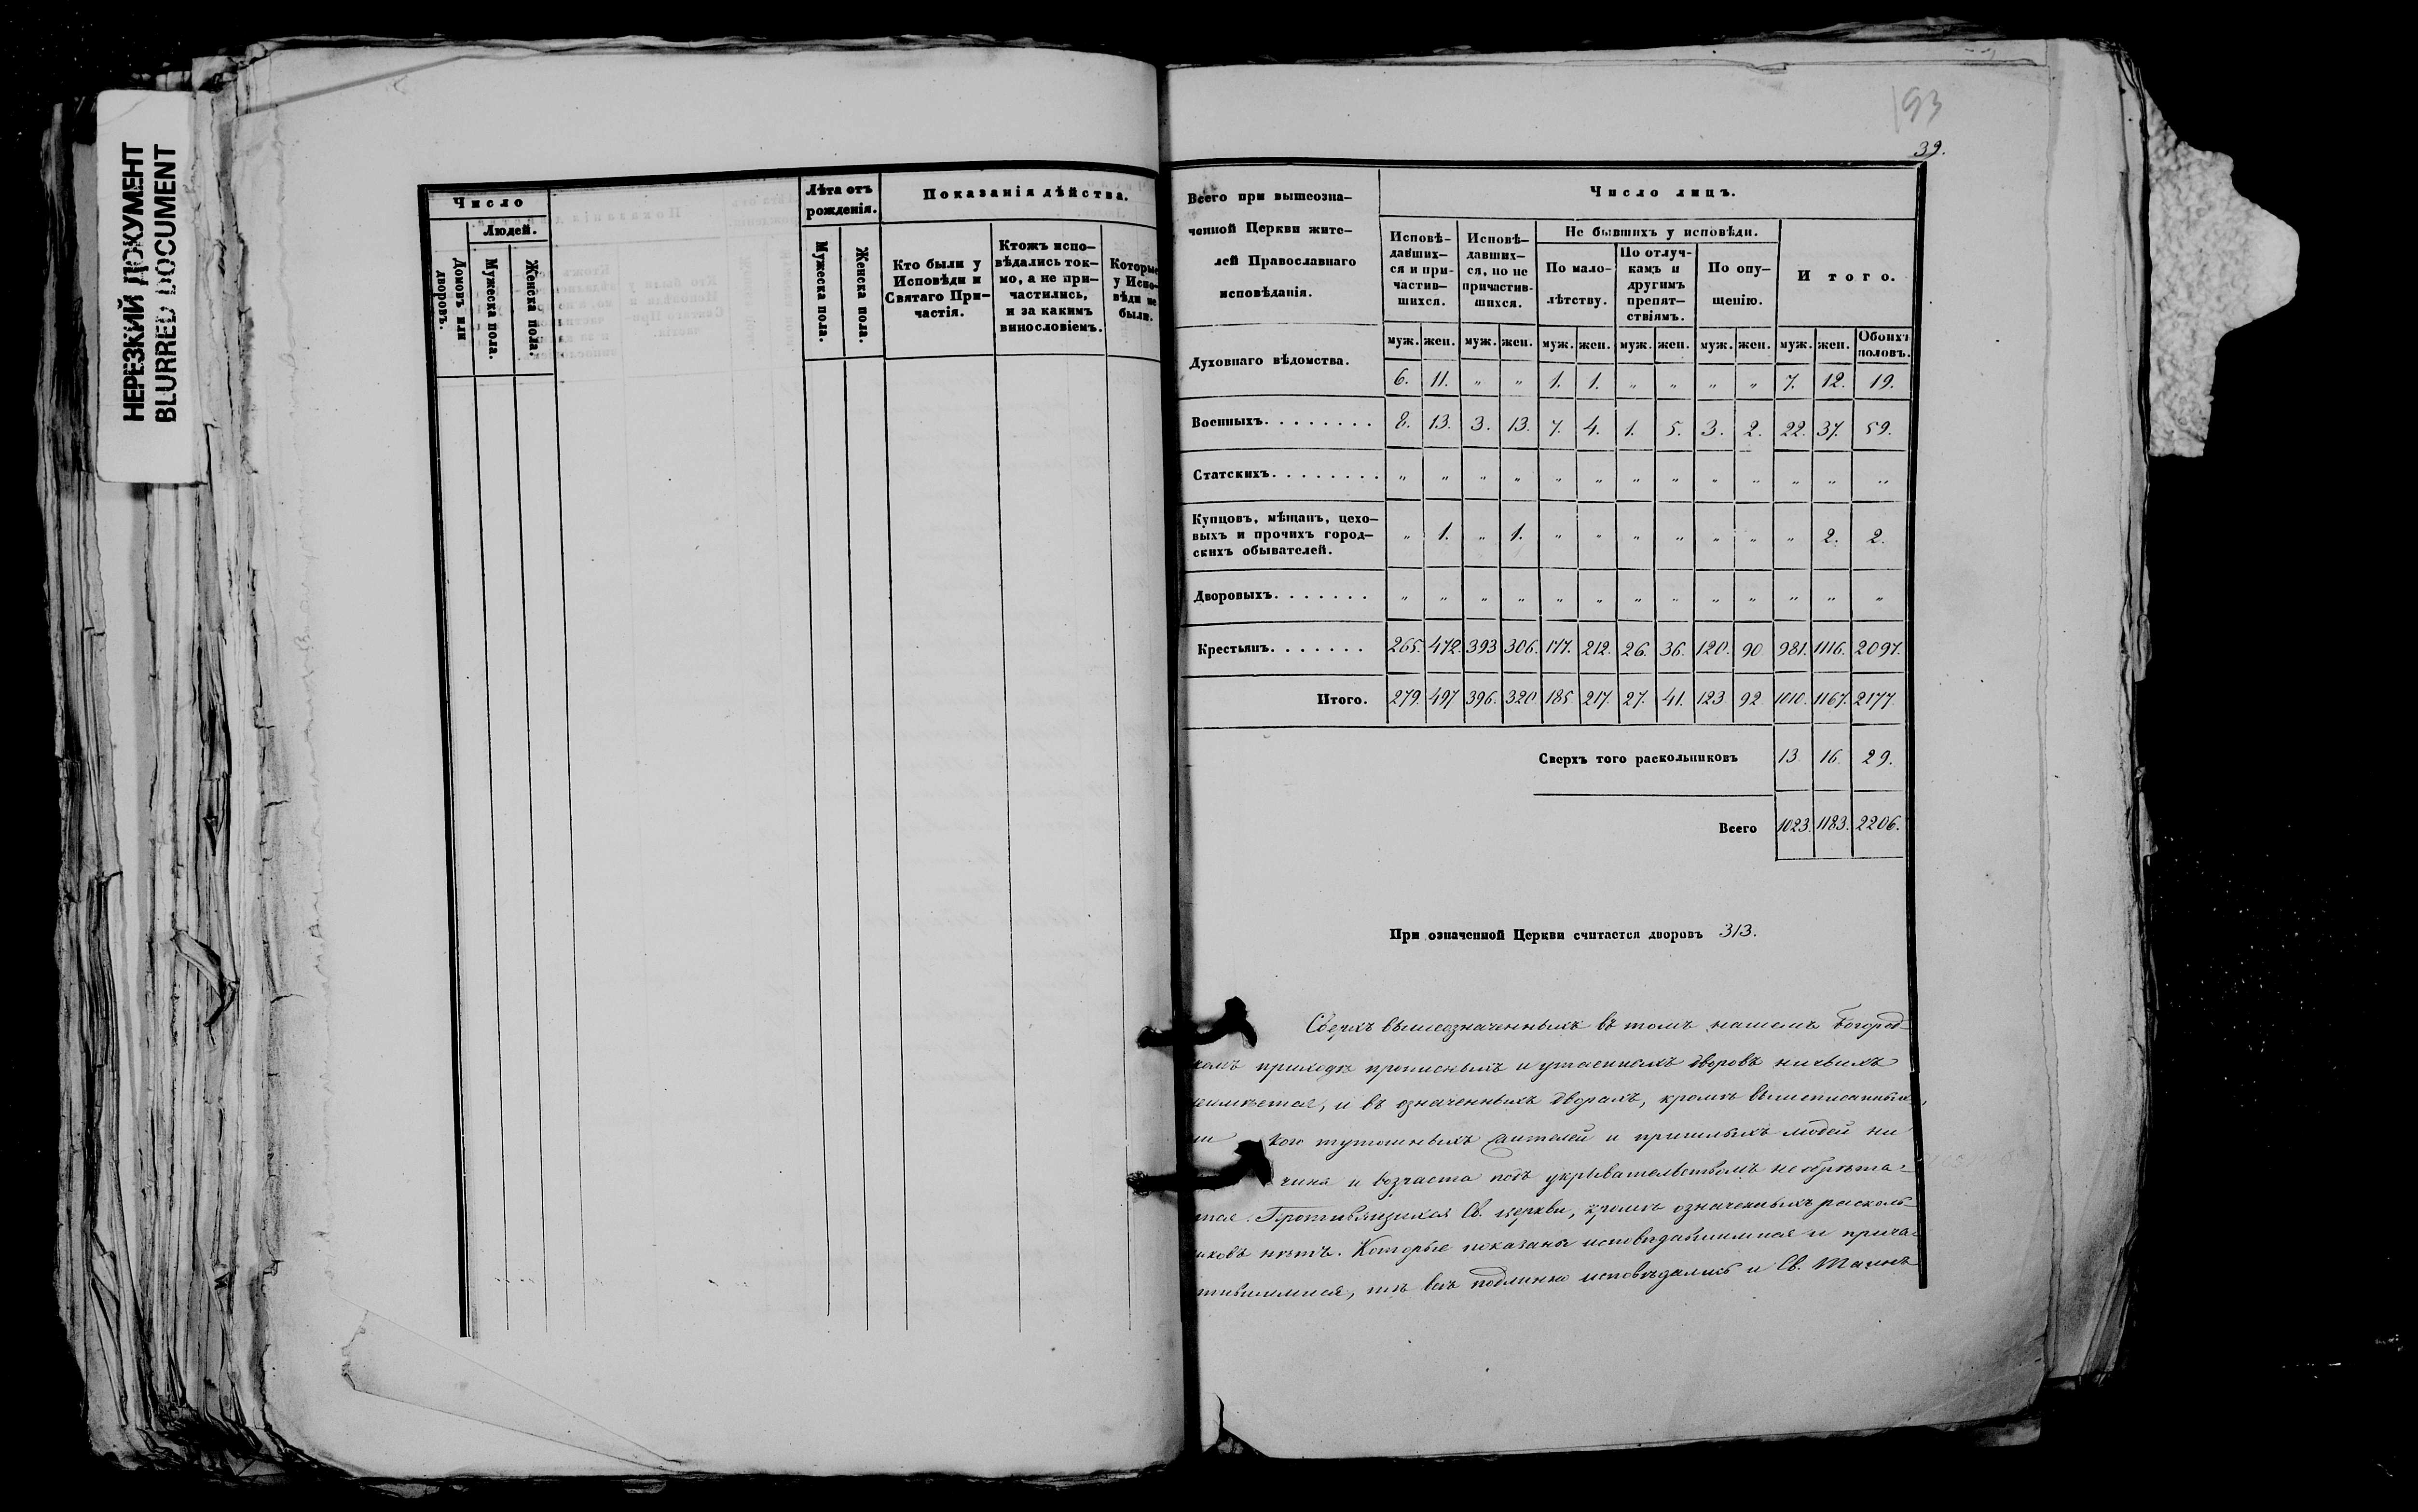 НЕРЕЗКИЙ ДОКУМЕНТ
BLURRED DOCUMENT
Число
Людей.
Домовъ или дворовъ.
Мужеска пола.
Женска пола.
Лѣта отъ рожденія.
Мужеска пола.
Женска пола.
Показанія дѣйства.
Кто были у Исповѣди и Святаго При-
частія.
Ктожъ испо-
вѣдались ток-
мо, а не при-
частились,
и за какимъ
винословіемъ.
Которые
у Испо-
вѣди не
были.
193
39.
Всего при вышеозна-
ченной Церкви жите-
лей Православнаго
исповѣданія.
Число лицъ.
Исповѣ-
давших-
ся и при-
частив-
шихся.
Исповѣ-
давших-
ся, но не
причастив-
шихся.
Не бывшихъ у исповѣди.
По мало-
лѣтству.
По отлуч-
камъ и
другимъ
препят-
ствіямъ.
По опу-
щенію.
Итого.
муж. жен. муж. жен. муж. жен. муж. жен. муж. жен. муж. жен. Обоихъ половъ.
Духовнаго вѣдомства. 6. 11. „ „ 1. 1. „ „ „ „ 7. 12. 19.
Военныхъ. . . . . . . . 8. 13. 3. 13. 7. 4. 1. 5. 3. 2. 22. 37. 59.
Статскихъ. . . . . . . . „ „ „ „ „ „ „ „ „ „ „ „ „
Купцовъ, мѣщанъ, цехо-
выхъ и прочихъ город-
скихъ обывателей. „ 1. „ 1. „ „ „ „ „ „ „ 2. 2.
Дворовыхъ. . . . . . . „ „ „ „ „ „ „ „ „ „ „ „ „
Крестьянъ. . . . . . . 265. 472. 393 306. 177. 212. 26. 36. 120. 90 981. 1116. 2097.
Итого. 279. 497 396. 320 185. 217. 27. 41. 123 92 1010. 1167. 2177
Сверхъ того раскольниковъ 13 16. 29.
Всего 1023. 1183. 2206.
При означенной Церкви считается дворовъ 313.
Сверхъ вышеозначенныхъ въ томъ нашемъ Богород-
приходѣ прописныхъ и утаенныхъ дворовъ ничьихъ
и въ означенныхъ дворахъ, кромѣ вышеписанныхъ,
кого тутошнихъ жителей и пришлыхъ людей ни
чина и возраста подъ укрывательствомъ не обрѣта-
Противящихся Св. церкви, кромѣ означенныхъ расколь-
нѣтъ. Которые показаны исповѣдавшимися и прича-
тѣ всѣ подлинно исповѣдались и Св. Таинъ